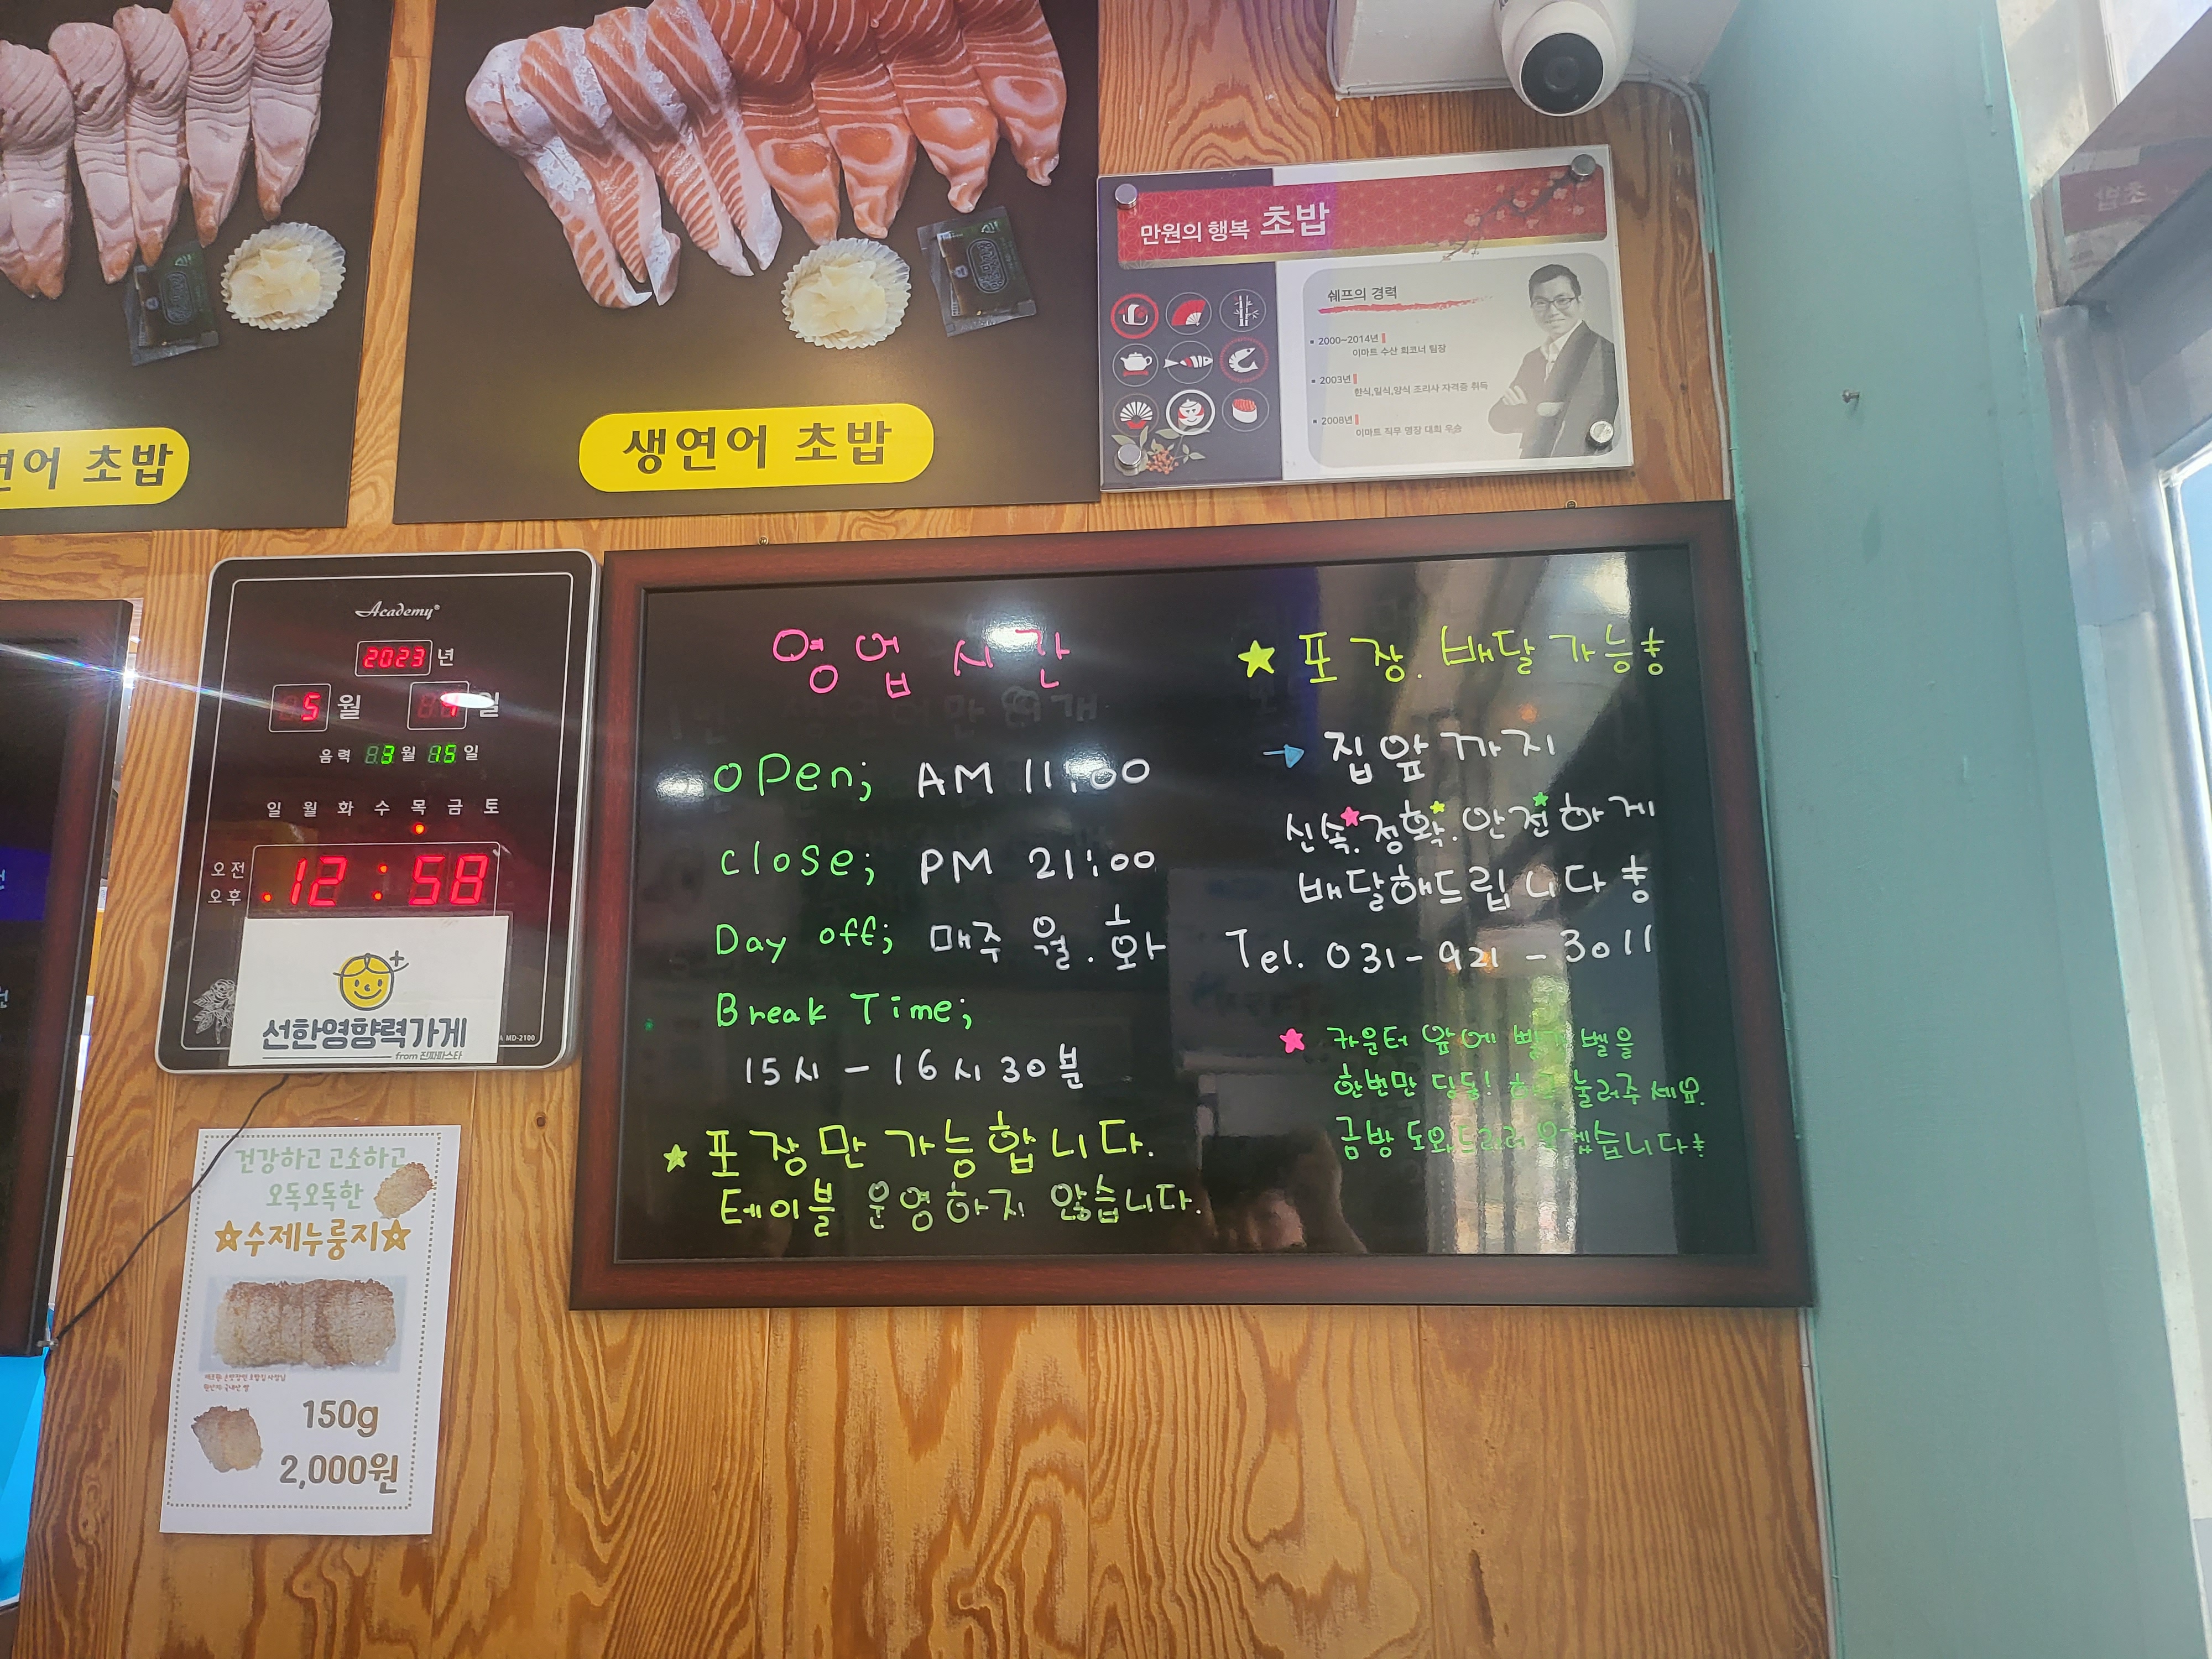 연어 초밥
생연어 초밥
만원의 행복 초밥
쉐프의 경력
2000~2014년
이마트 수산 회코너 팀장
2003년
한식,일식,양식 조리사 자격증 취득
2008년
이마트 직무 명장 대회 우승
Academy
2023 년
5 월 일
음력 3 월 15 일
일 월 화 수 목 금 토
오전
오후
12:58
선한영향력가게
from 진짜파스타
MD-2100
영업시간
open; AM 11:00
close; PM 21:00
Day off; 매주 월.화
Break Time;
15시 - 16시30분
★ 포장만 가능합니다.
테이블 운영하지 않습니다.
★ 포장. 배달 가능힣
→ 집앞까지
신속.정확.안전하게
배달해드립니다
Tel. 031-921-3011
★ 카운터 앞에 벨을
한번만 딩동! 하고 눌러주세요.
금방 도와드리러 오겠습니다
건강하고 고소하고
오독오독한
☆수제누룽지☆
150g
2,000원
초밥